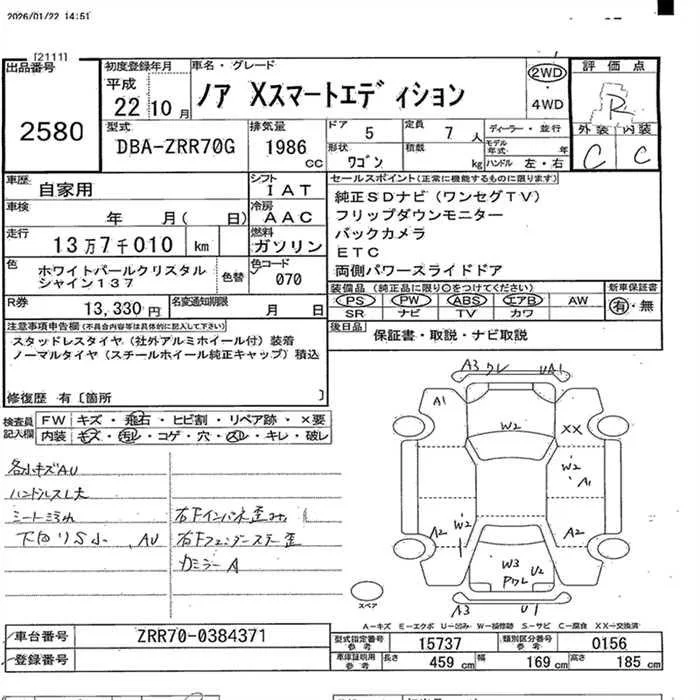 2026/01/22 14:51
[2111]
出品番号
2580
初度登録年月
平成
22 10 月
車名・グレード
ノア Xスマートエディション
2WD
・
4WD
評価点
R
外装 内装
C C
型式
DBA-ZRR70G
排気量
1986 cc
ドア 5
定員 7 人
ディーラー・並行
形状 ワゴン
積載 kg
モデル年式 年
ハンドル 左・右
車歴 自家用
シフト IAT
車検 年 月( 日)
冷房 AAC
走行 13万7千010 km
燃料 ガソリン
色 ホワイトパールクリスタル
シャイン137
色替
色コード 070
R券 13,330円
名変通知期限 月 日
セールスポイント(正常に機能するものに限ります)
純正SDナビ(ワンセグTV)
フリップダウンモニター
バックカメラ
ETC
両側パワースライドドア
装備品(純正品に限り○をつけてください)
新車保証書
PS PW ABS エアB AW
SR ナビ TV カワ
有・無
後日品 保証書・取説・ナビ取説
注意事項申告欄(不具合内容等は具体的に記入して下さい)
スタッドレスタイヤ(社外アルミホイール付)装着
ノーマルタイヤ(スチールホイール純正キャップ)積込
修復歴 有〔箇所 〕
検査員
記入欄
FW キズ・飛石・ヒビ割・リペア跡・×要
内装 キズ・汚レ・コゲ・穴・スレ・キレ・破レ
各小キズAU
ハンドルスレ大
シートミミれ
下回りS小 、AU
右Fインパネ歪み
右Fフェンダーステー歪
カミラーA
A3 ワレ UA1
A1
W2
XX
W2
A1
A2
W2
A2
W3
U2
Pワレ
A3 U1
スペア
A-キズ E-エクボ U-凹み W-補修跡 S-サビ C-腐食 XX-交換済
車台番号 ZRR70-0384371
登録番号
型式指定番号
参考
15737
類別区分番号
参考
0156
車庫証明用
参考
長さ 459 cm
幅 169 cm
高さ 185 cm